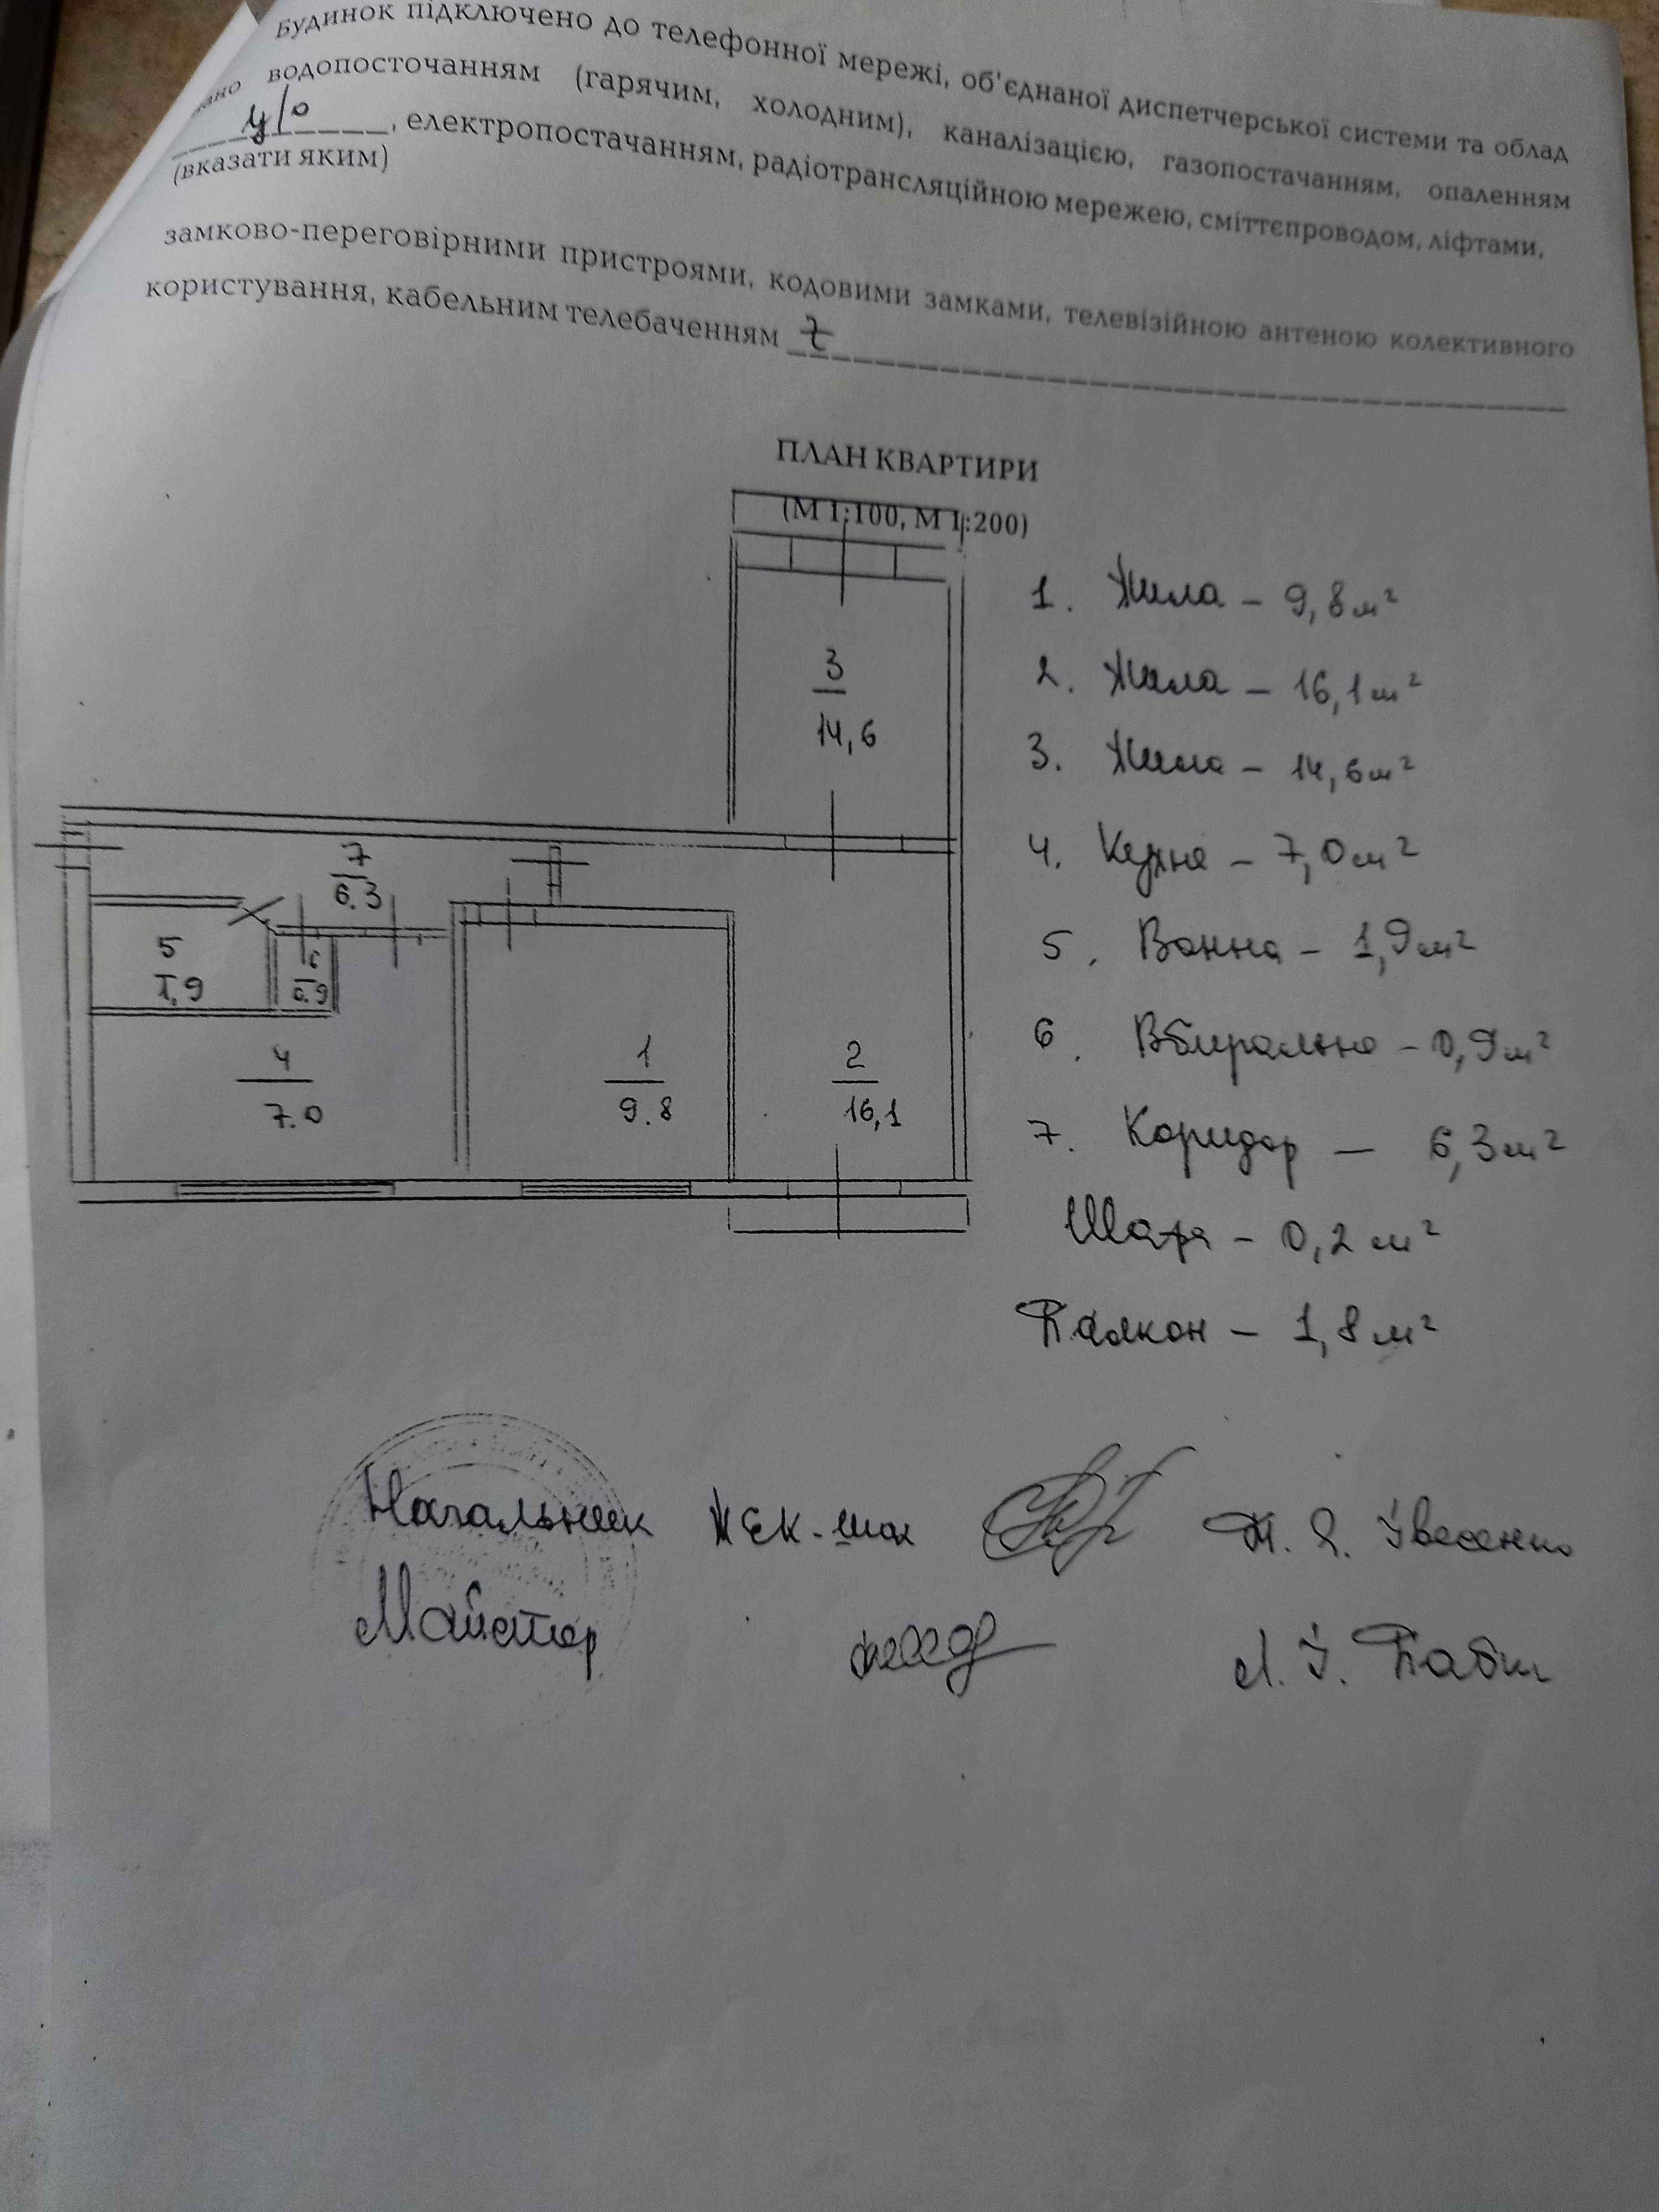 Будинок підключено до телефонної мережі, об'єднаної диспетчерської системи та облад
водопосточанням (гарячим, холодним), каналізацією, газопостачанням, опаленням
ц/о, електропостачанням, радіотрансляційною мережею, сміттєпроводом, ліфтами,
(вказати яким)
замково-переговірними пристроями, кодовими замками, телевізійною антеною колективного
користування, кабельним телебаченням
ПЛАН КВАРТИРИ
(М 1:100, М 1:200)
1. Жила – 9,8 м²
2. Жила – 16,1 м²
3. Жила – 14,6 м²
4. Кухня – 7,0 м²
5. Ванна – 1,9 м²
6. Вбиральня – 0,9 м²
7. Коридор – 6,3 м²
Шафа – 0,2 м²
Балкон – 1,8 м²
3
14,6
7
6.3
5
1,9
6
0.9
4
7.0
1
9.8
2
16,1
Начальник ЖЕК
Майстер